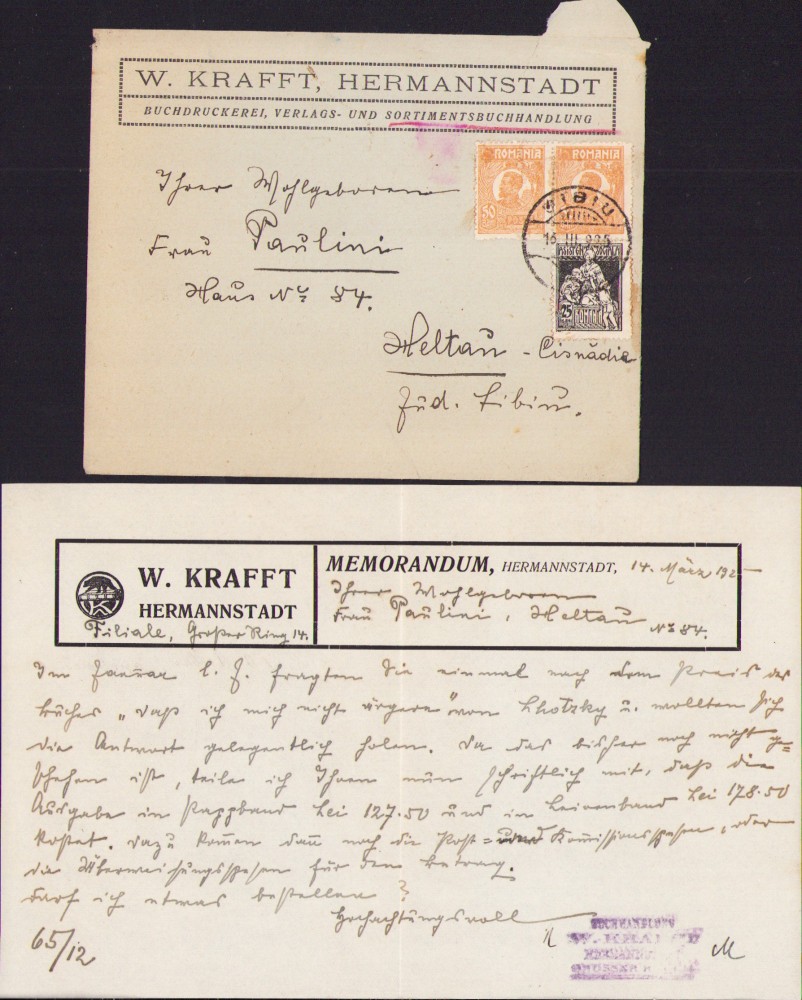 W. KRAFFT, HERMANNSTADT
BUCHDRUCKEREI, VERLAGS- UND SORTIMENTSBUCHHANDLUNG
ROMANIA ROMANIA
50
SIBIU
25
ROMANIA
Ihrer Wohlgeboren
Frau Paulini
Haus No 84.
Heltau - Cisnădie
Jud. Sibiu.
W. KRAFFT
HERMANNSTADT
Filiale, Großer Ring 14.
MEMORANDUM, HERMANNSTADT, 14. März 1925
Ihrer Wohlgeboren
Frau Paulini, Heltau
No 84.
Im Januar l. J. fragten Sie einmal nach dem Preis des
Buches „daß ich mich nicht ärgere" von Lhotzky u. wollten sich
die Antwort gelegentlich holen. Da das bisher noch nicht ge=
schehen ist, teile ich Ihnen nun schriftlich mit, daß die
Ausgabe in Pappband Lei 127.50 und in Leinenband Lei 178.50
kostet. Dazu kommen dann noch die Post= Kommissionsspesen, oder
die Überweisungsspesen für den Betrag.
Darf ich etwas bestellen?
Hochachtungsvoll
65/12
BUCHHANDLUNG
W. KRAFFT
HERMANNSTADT
GROSSER RING